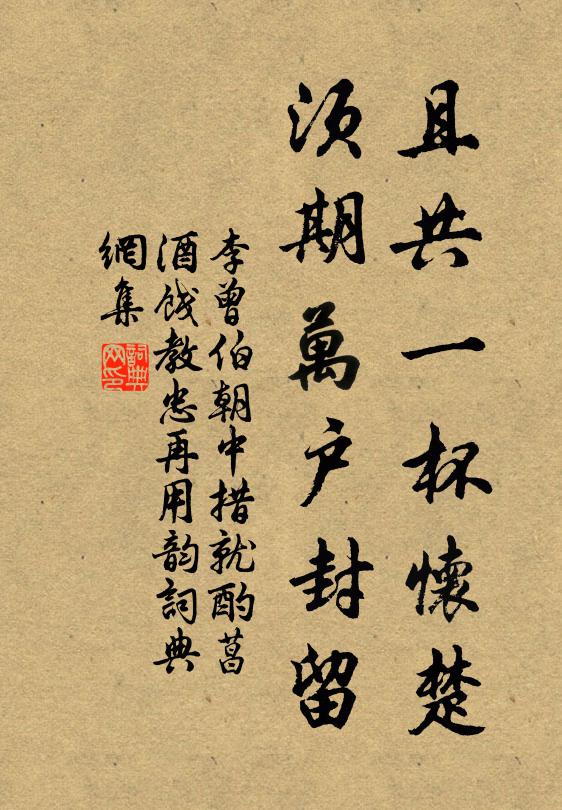 且共一杯懷楚
須期萬户封留
李曾伯朝中措就酌菖
酒餞教忠再用韵詞典
網集
詞典
网印